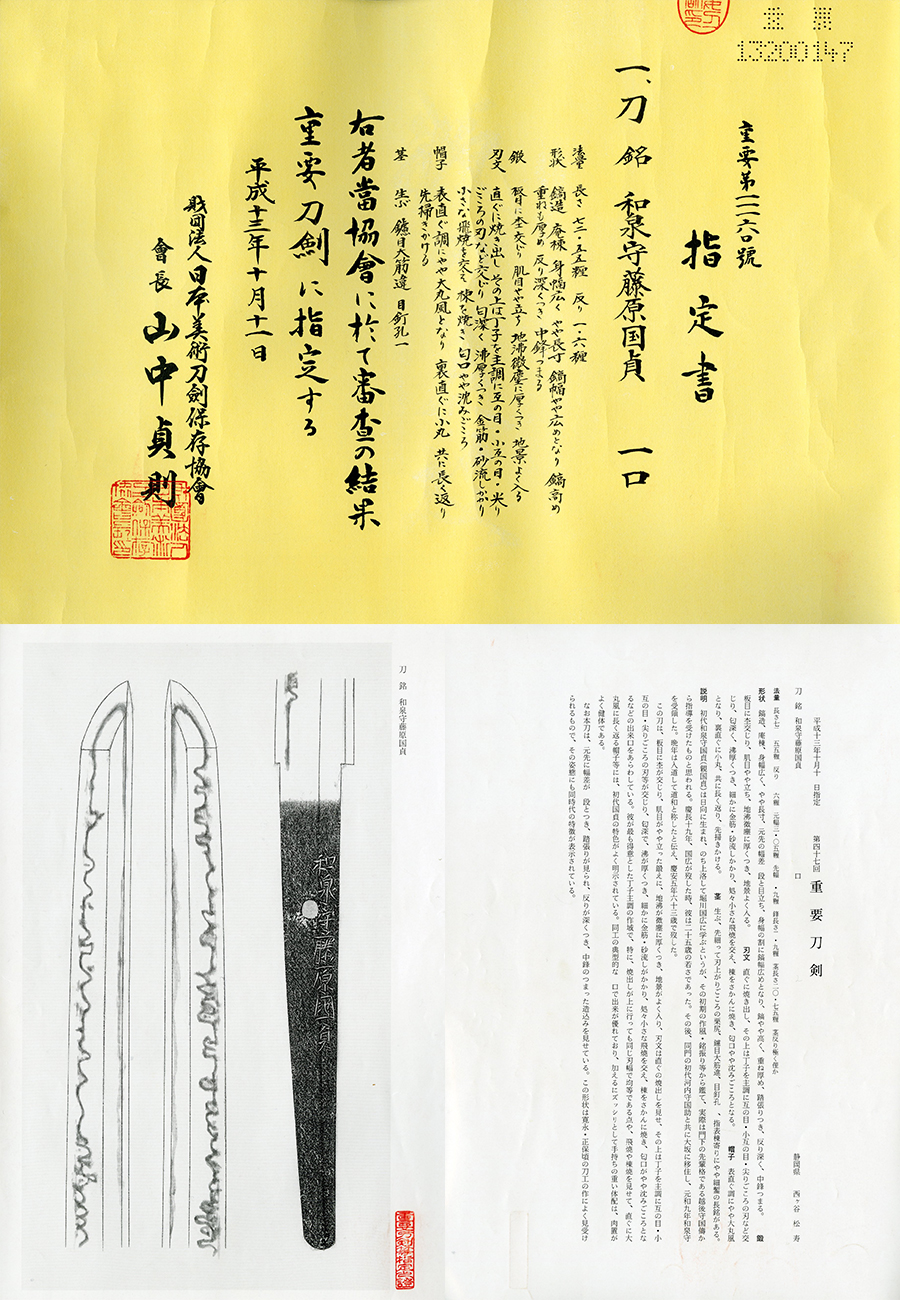 重要
13200147
重要第一一二六〇號
指定書
一、刀 銘 和泉守藤原国貞 一口
法量 長さ 七二・五五糎 反り 一・六糎
形状 鎬造 庵棟 身幅広く やや長寸 鎬幅やや広めとなり 鎬高め
重ねも厚め 反り深くつき 中鋒つまる
鍛 板目に杢交じり 肌目やや立ち 地沸微塵に厚くつき 地景よく入る
刃文 直ぐに焼き出し その上は丁子を主調に互の目・小互の目・尖り
ごころの刃など交じり 匂深く 沸厚くつき 金筋・砂流しかかり
小さな飛焼を交え 棟を焼き 匂口やや沈みごころ
帽子 表直ぐ調にやや大丸風となり 裏直ぐに小丸 共に長く返り
先掃きかける
茎 生ぶ 鑢目大筋違 目釘孔一
右者當協會に於て審査の結果
重要刀劍に指定する
平成十三年十月十一日
財団法人日本美術刀劍保存協會
會長 山中貞則
刀 銘 和泉守藤原国貞
和泉守藤原國貞
平成十三年十月十 日指定 第四十七回 重要刀剣
刀 銘 和泉守藤原国貞 口 静岡県 西ヶ谷 松 寿
法量 長さ七 五五糎 反り 六糎 元幅三・〇五糎 先幅 ・九糎 鋒長さ ・九糎 茎長さ二〇・七五糎 茎反り極く僅か
形状 鎬造、庵棟、身幅広く、やや長寸、元先の幅差 段と目立ち、身幅の割に鎬幅広めとなり、鎬やや高く、重ね厚め、踏張りつき、反り深く、中鋒つまる。 鍛
板目に杢交じり、肌目やや立ち、地沸微塵に厚くつき、地景よく入る。 刃文 直ぐに焼き出し、その上は丁子を主調に互の目・小互の目・尖りごころの刃など交
じり、匂深く、沸厚くつき、細かに金筋・砂流しかかり、処々小さな飛焼を交え、棟をさかんに焼き、匂口やや沈みごころとなる。 帽子 表直ぐ調にやや大丸風
となり、裏直ぐに小丸、共に長く返り、先掃きかける。 茎 生ぶ、先細って刃上がりごころの栗尻、鑢目大筋違、目釘孔 、指表棟寄りにやや細鏨の長銘がある。
説明 初代和泉守国貞(親国貞)は日向に生まれ、のち上洛して堀川国広に学ぶというが、その初期の作風・銘振り等から鑑て、実際は門下の先輩格である越後守国儔か
ら指導を受けたものと思われる。慶長十九年、国広が歿した時、彼は二十五歳の若さであった。その後、同門の初代河内守国助と共に大坂に移住し、元和九年和泉守
を受領した。晩年は入道して道和と称したと伝え、慶安五年六十三歳で歿した。
この刀は、板目に杢が交じり、肌目がやや立った鍛えに、地沸が微塵に厚くつき、地景がよく入り、刃文は直ぐの焼出しを見せ、その上は丁子を主調に互の目・小
互の目・尖りごころの刃等が交じり、匂深で、沸が厚くつき、細かに金筋・砂流しがかかり、処々小さな飛焼を交え、棟をさかんに焼き、匂口がやや沈みごころとな
るなどの出来口をあらわしている。彼が最も得意とした丁子主調の作域で、特に、焼出しが上に行っても同じ刃幅で均等である点や、飛焼や棟焼を見せて、直ぐに大
丸風に長く返る帽子等には、初代国貞の特色がよく明示されている。同工の典型的な 口で出来が優れており、加えるにズッシリとして手持ちの重い体配は、肉置が
よく健体である。
なお本刀は、元先に幅差が 段とつき、踏張りが見られ、反りが深くつき、中鋒のつまった造込みを見せている。この形状は寛永・正保頃の刀工の作によく見受け
られるもので、その姿態にも同時代の特徴が表示されている。